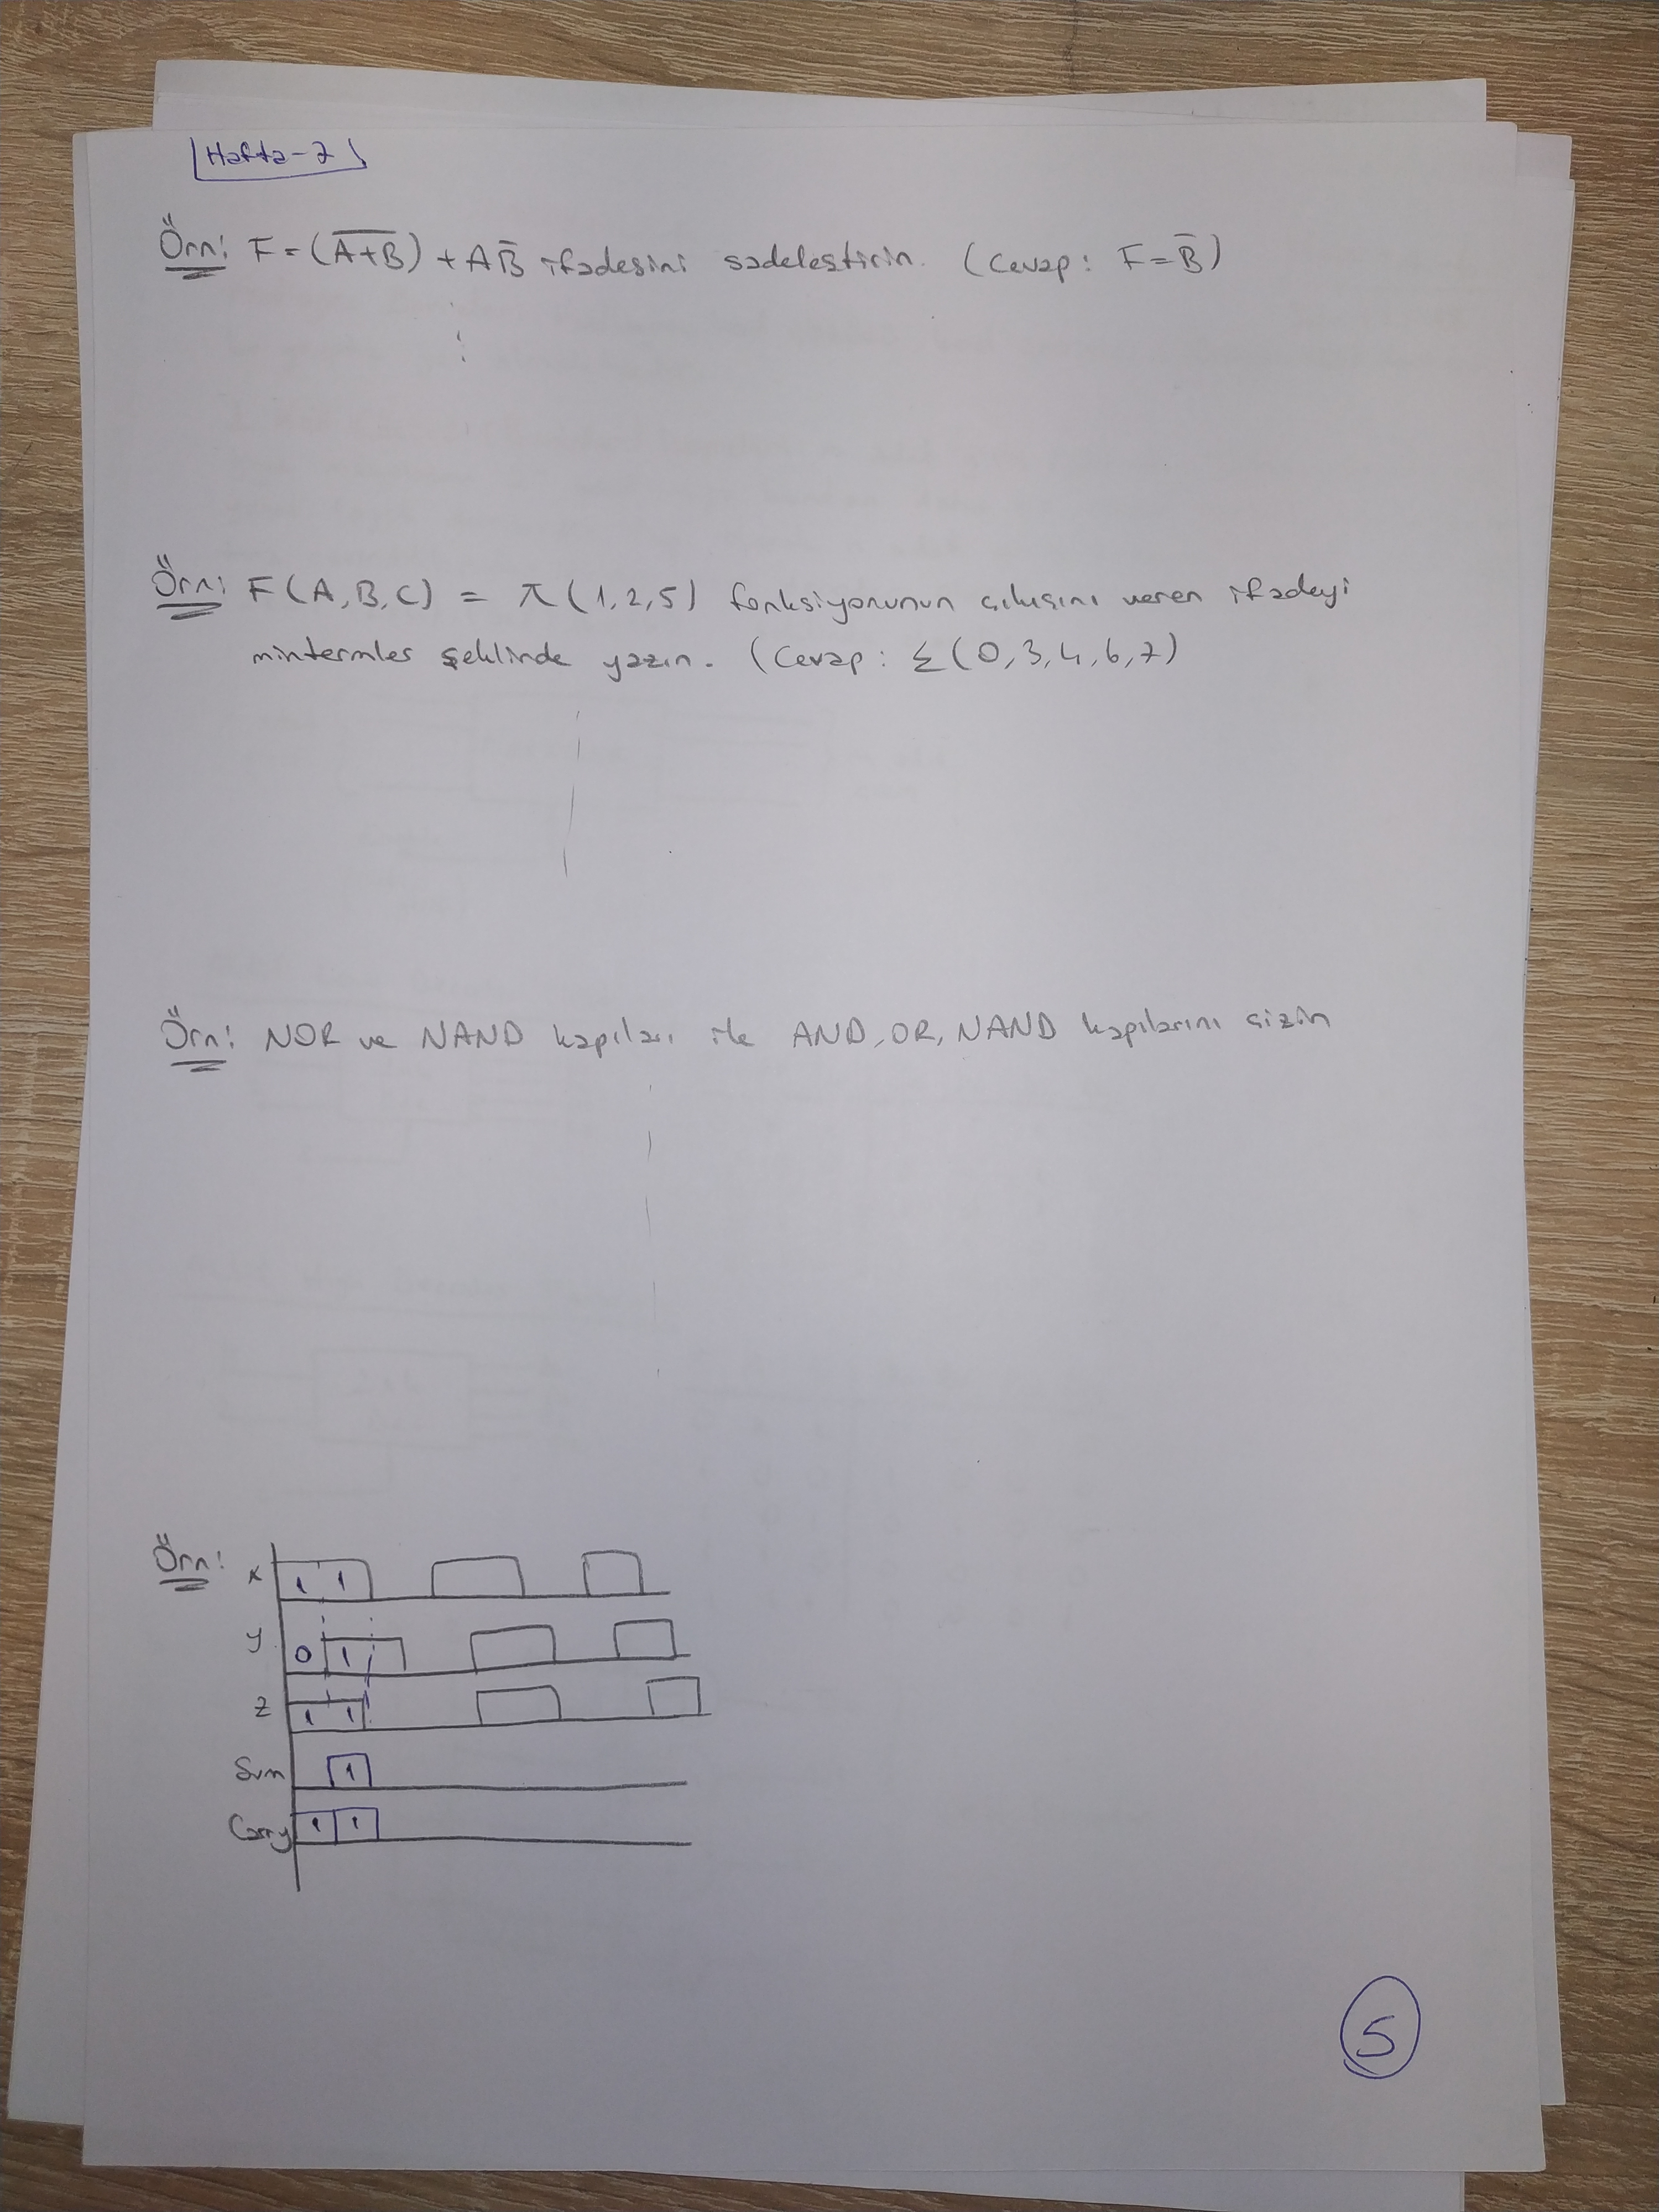 Hafta-7
Örn: F = (\overline{A+B}) + AB̅ ifadesini sadeleştirin. (Cevap: F=B̅)
Örn: F(A,B,C) = π(1,2,5) fonksiyonunun çıkışını veren ifadeyi
mintermler şeklinde yazın. (Cevap: Σ(0,3,4,6,7)
Örn: NOR ve NAND kapıları ile AND, OR, NAND kapılarını çizin
Örn:
x 1 1
y 0 1
z 1 1
Sum 1
Carry 1 1
5